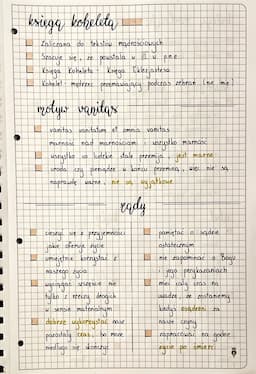 księga koheleta
Zaliczana do tekstów mądrościowych
Szacuje się, że powstała w III w. p.n.e
Księga Koheleta = Księga Eklezjastesa
Kohelet - mędrzec przemawiający podczas zebrań (nie imię)
motyw vanitas
vanitas vanitatum et omnia vanitas
marność nad marnościami i wszystko marność
wszystko co ludzkie stale przemija, jest marne
uroda czy pieniądze w końcu przeminą, więc nie są
naprawdę ważne, nie są wyjątkowe
rady
cieszyć się z przyjemności
jakie oferuje życie
umiejętnie korzystać z
naszego życia
wyciągać szczęście nie
tylko z rzeczy drogich
w sensie materialnym
dobrze wykorzystać nasz
pozostały czas, bo może
niedługo się skończyć
pamiętać o sądzie
ostatecznym
nie zapominać o Bogu
i jego przykazaniach
mieć cały czas na
uwadze, że zostaniemy
kiedyś osądzeni za
nasze czyny
zapracować na godne
życie po śmierci